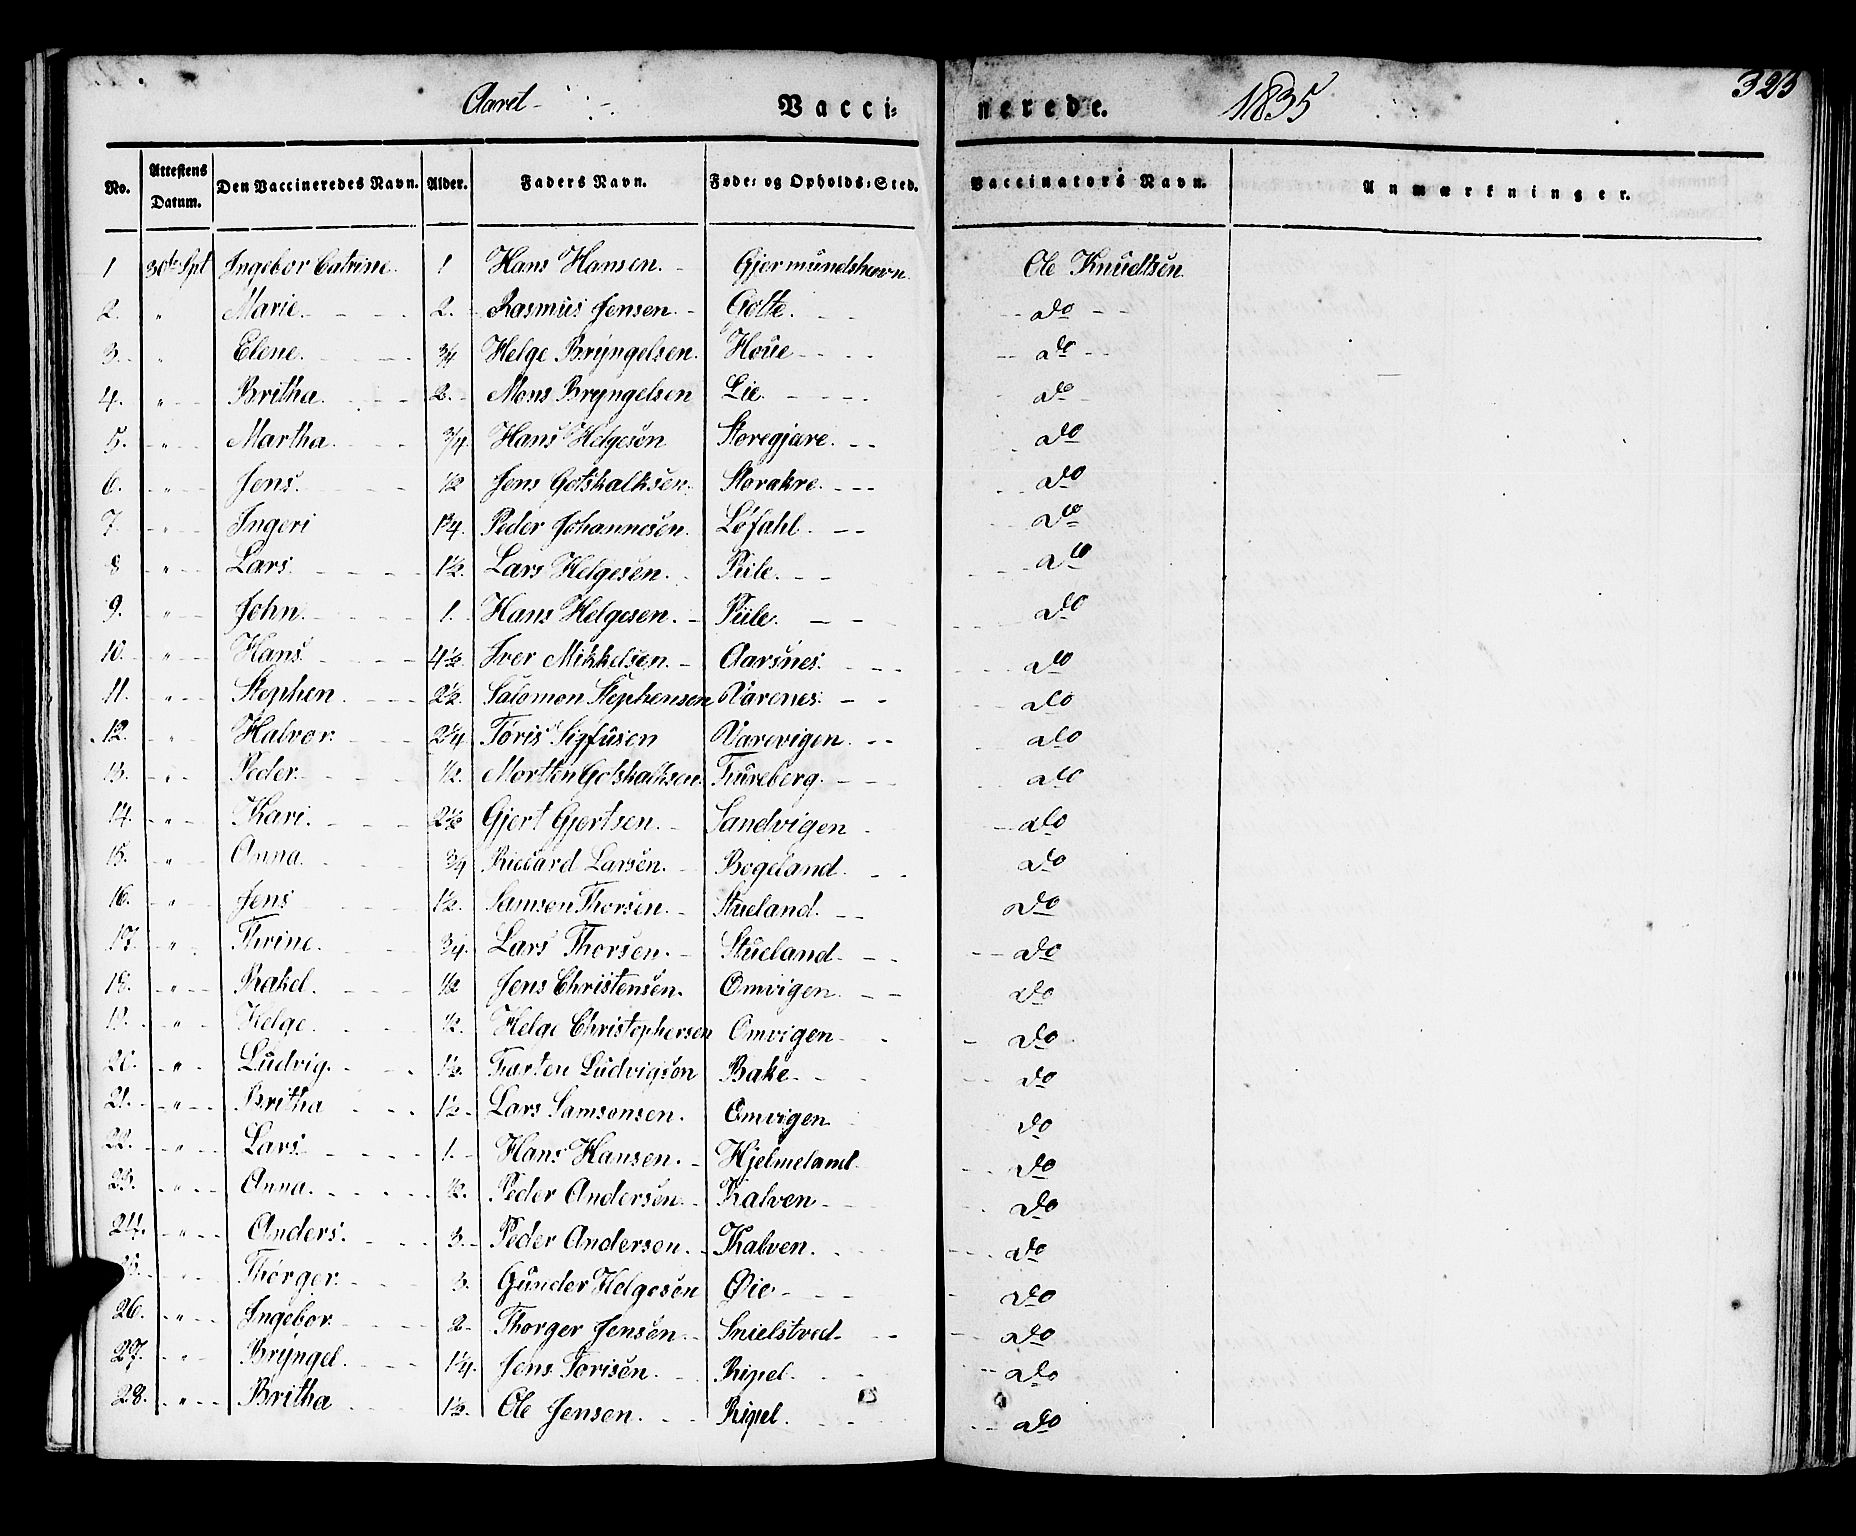 Aaret Vacci= nerede. 1835 323
No. Attestens Datum. Den Vaccineredes Navn. Alder. Faders Navn. Føde= og Opholds=Sted. Vaccinators Navn. Anmærkninger.
1 30te Spt Ingebor Catrine. 1 Hans Hansen. Gjermundshavn Ole Knudtsen
2. " Marie. 2. Rasmus Jensen. Golte. do
3. " Elene. 3/4 Helge Bryngelsen. Houe do
4. " Britha. 2. Mons Bryngelsen Lie. do
5. " Martha. 3/4. Hans Helgesen Storegjare. do
6. " Jens. 1/2 Jens Gotskalksen. Storakre. do
7. " Ingeri 1 3/4. Peder Johannesen. Løfahl. do
8 " Lars. 1 1/2. Lars Helgesen. Piile. do
9. " John. 1. Hans Helgesen. Piile. do
10. " Hans. 4 1/2. Iver Mikkelsen. Aarsnes. do
11. " Stephen 2 1/2. Salomon Stephensen Varenes. do
12. " Halvor. 2 1/4. Tøris Sigfusen Varevigen. do
13. " Peder. 1/2. Morten Gotskalksen. Tureberg. do
14. " Kari. 2 1/2 Gjert Gjertsen. Sandvigen do
15. " Anna. 3/4 Riccard Larsen. Bogeland. do
16. " Jens 1 1/2. Samson Thorsen. Stueland. do
17. " Thrine. 3/4. Lars Thorsen. Stueland. do
18. " Rakel. 1/2 Jens Christensen. Omvigen. do
19. " Helge. 1/2. Helge Christophersen Omvigen. do
20. " Ludvig. 1 1/2. Tarten Ludvigsen Bake. do
21. " Britha 1 1/2. Lars Samsonsen. Omvigen do
22. " Lars. 1. Hans Hansen. Hjelmeland. do
23. " Anna. 1/2. Peder Andersen. Kalven do
24. " Anders. 3. Peder Andersen. Kalven. do
25. " Thorger. 3. Gunder Helgesen Øie. do
26. " Ingebor. 2. Thorger Jensen. Snielstved. do
27. " Bryngel. 1 1/4. Jens Torisen. Ripel. do
28. " Britha 1 1/2. Ole Jensen. Ripel. do